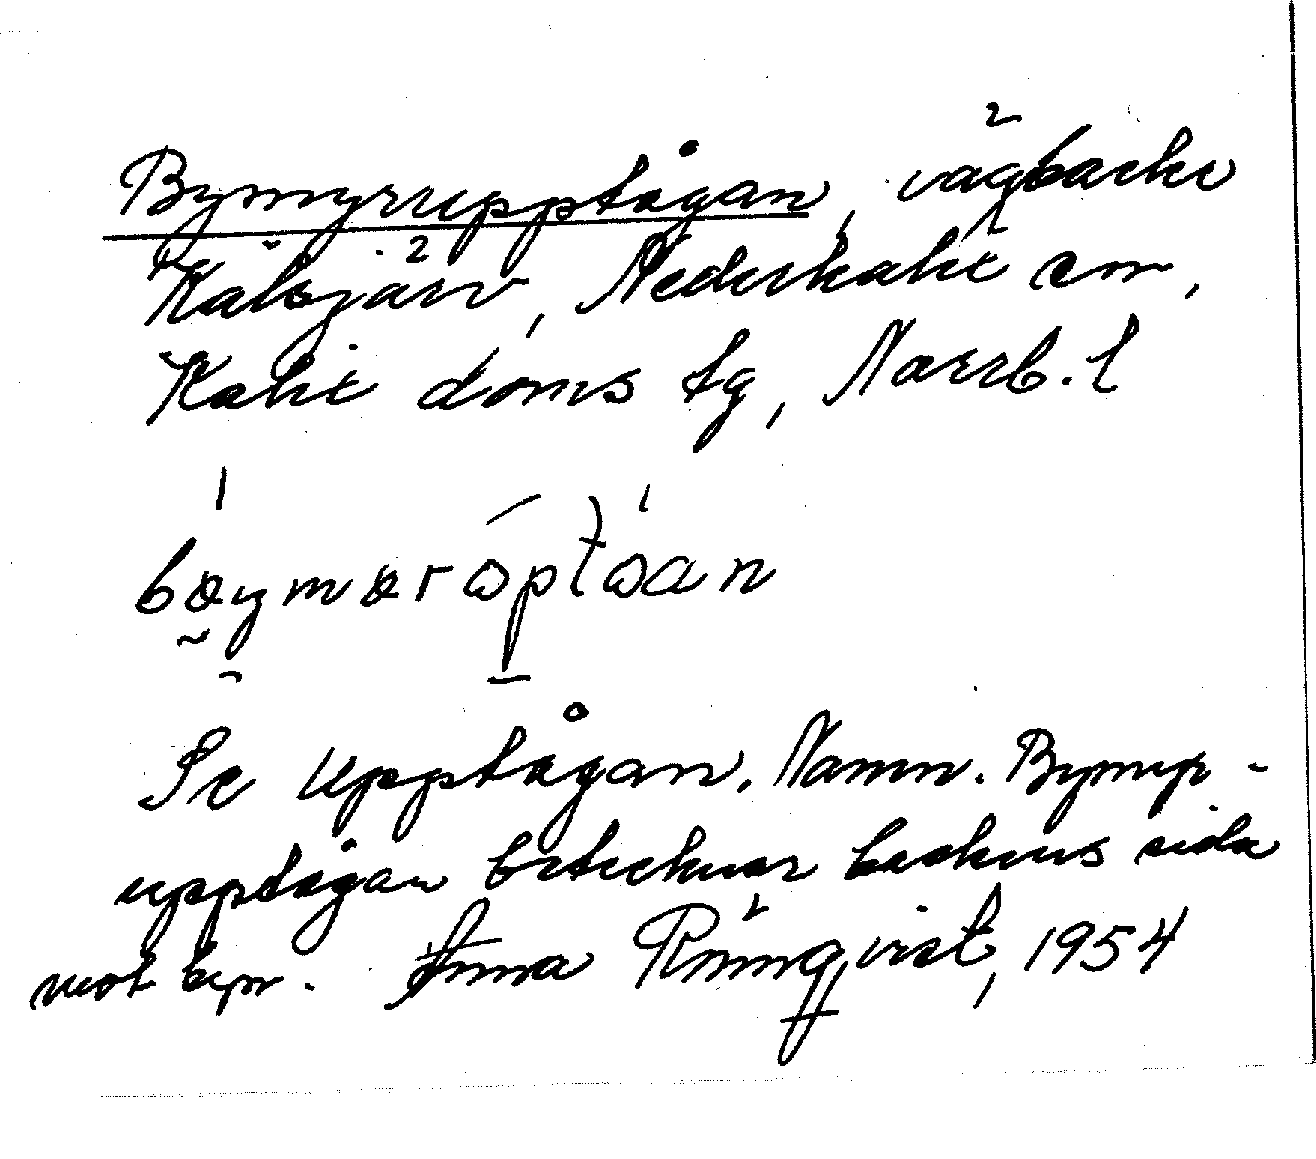 Bymyrupptågan, vägbacke
Kälsjärv, Nederkalix sn,
Kalix doms tg, Norrb. l
bøymøròptòan
Se Upptågan. Namn. Bymyr-
upptågan betecknar backens sida
mot byn. Anna Rönnqvist, 1954